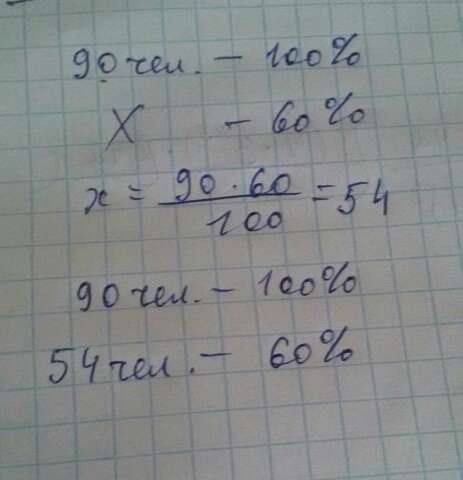 90 чел. - 100%
X - 60%
x = 90 · 60 / 100 = 54
90 чел. - 100%
54 чел. - 60%